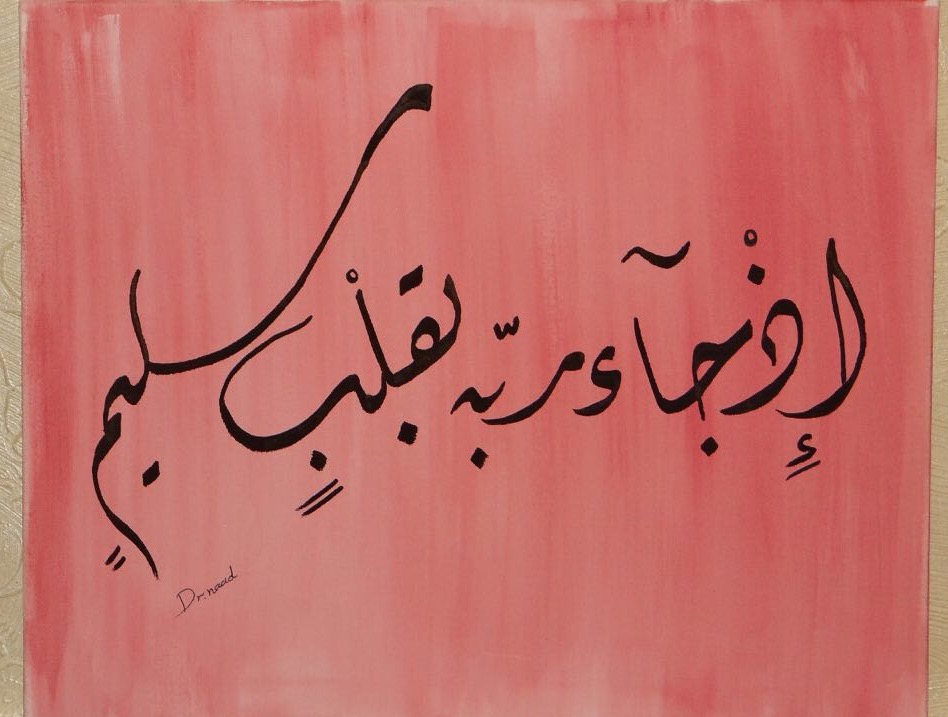 إِذْ جَآء ربّه بقلْبٍ سليمٍ
Dr.naad